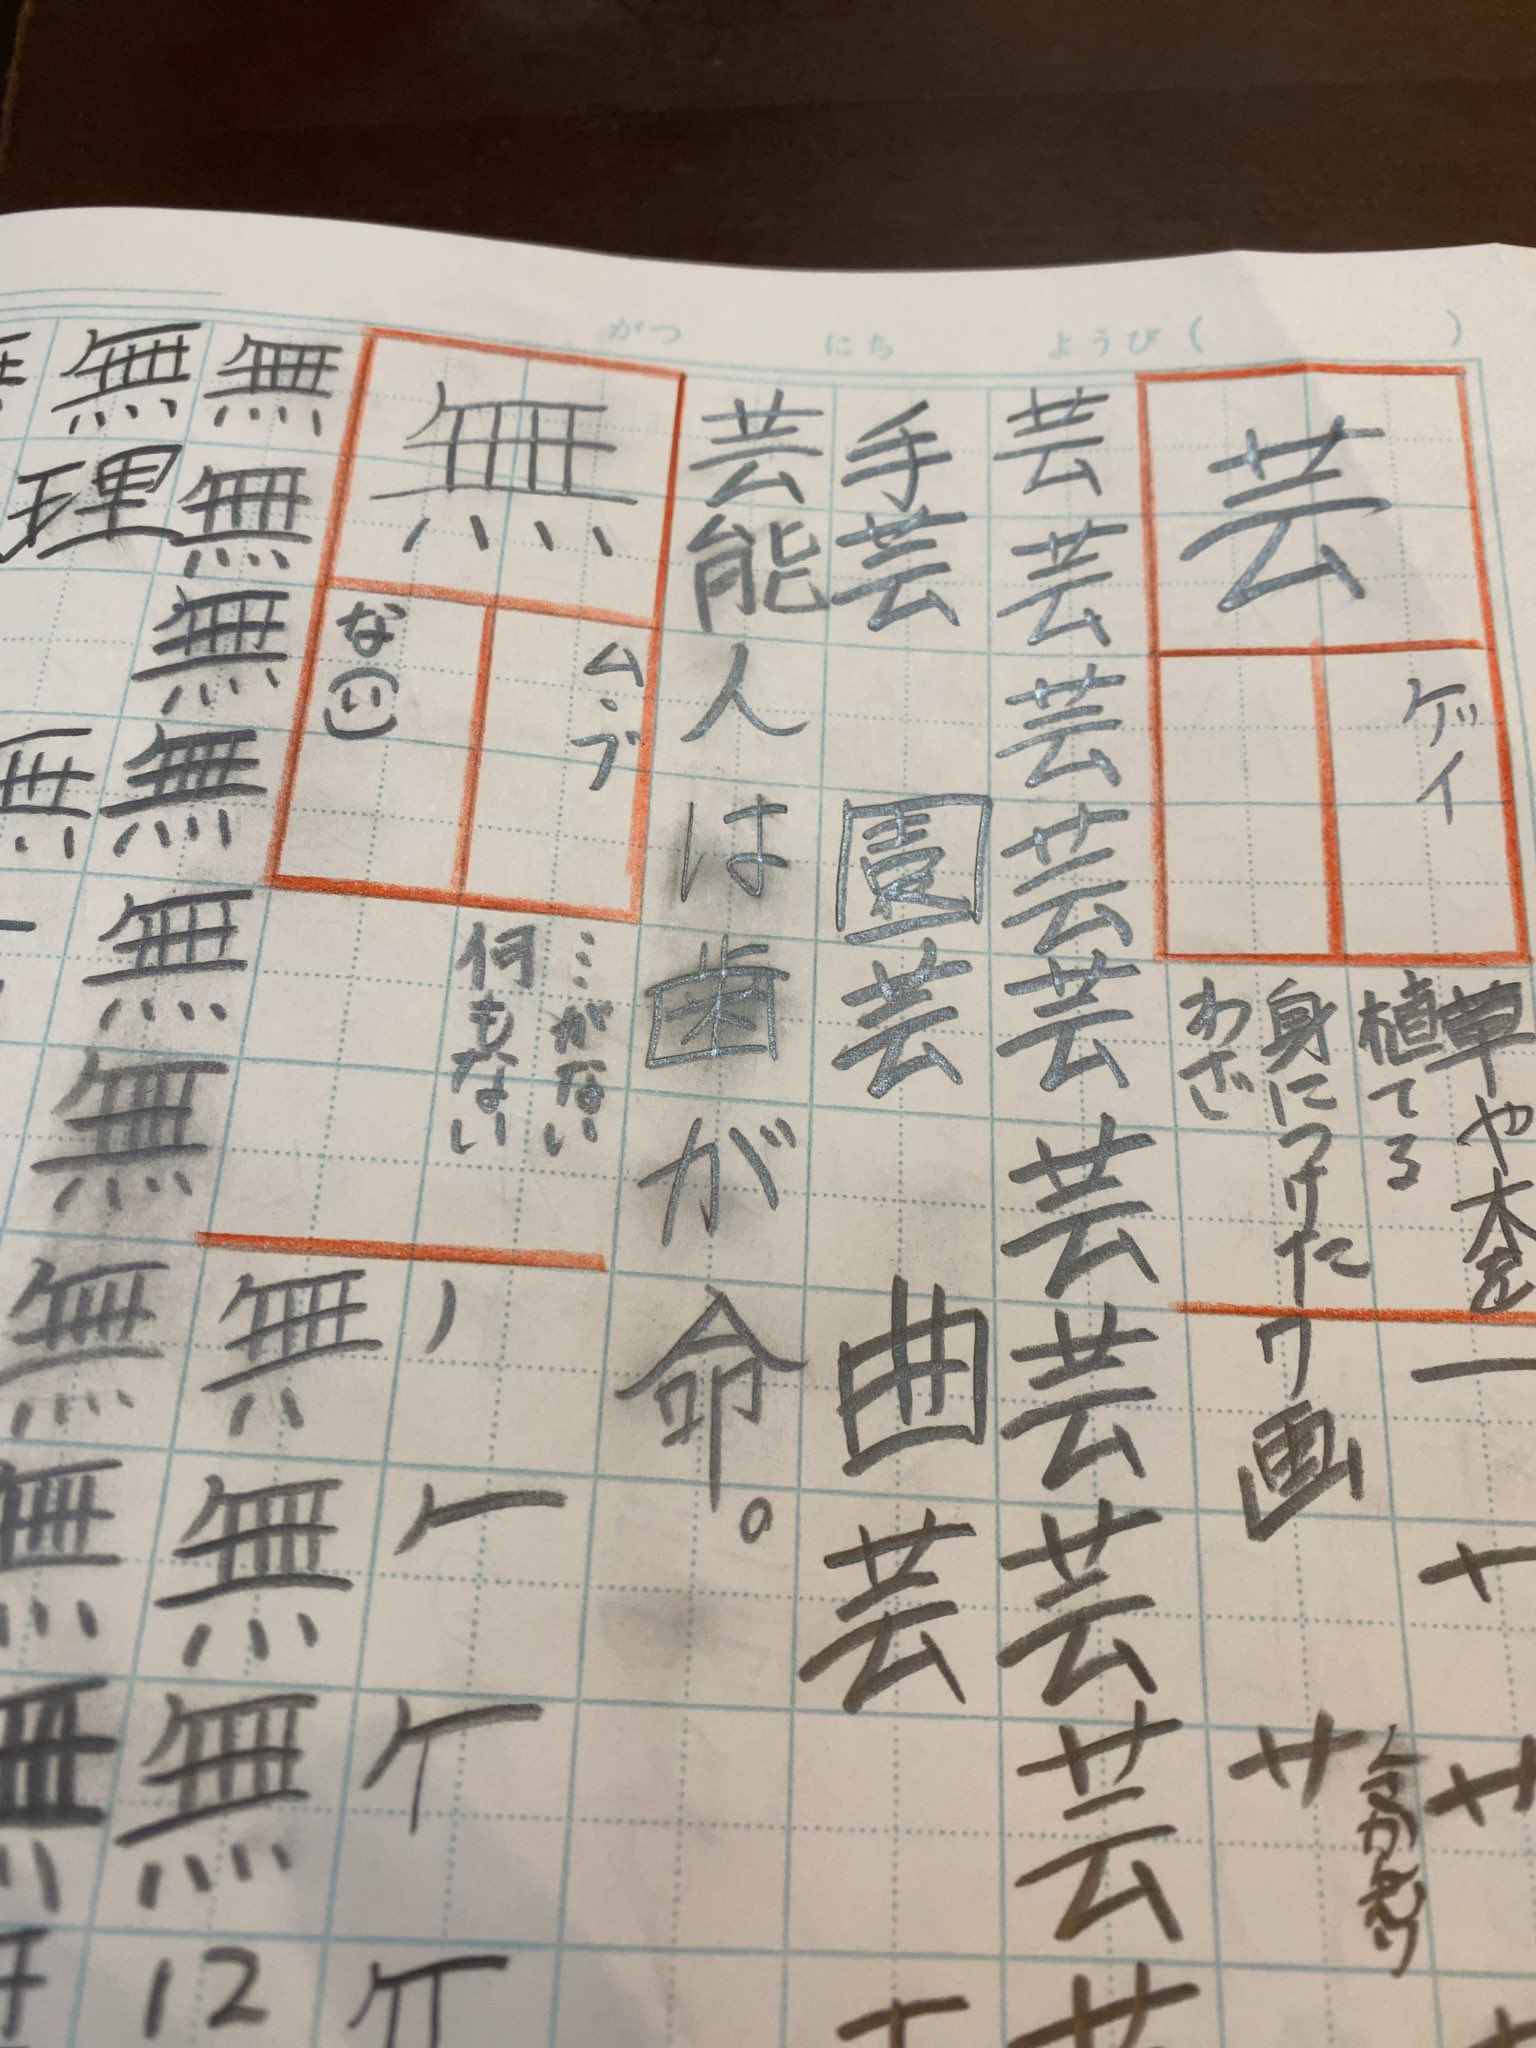 がつ　にち　ようび（　　）
芸
ゲイ
草や木を
植てる
身につけた
わざ
一
十
サ
くさかんむり
ワ画
サ
芸芸芸芸芸芸芸芸芸
手芸　園芸　曲芸
芸能人は歯が命。
無
ム・ブ
な(い)
…がない
何もない
ノ
𠂉
無無無
12
無無無無無無無無
無理
無